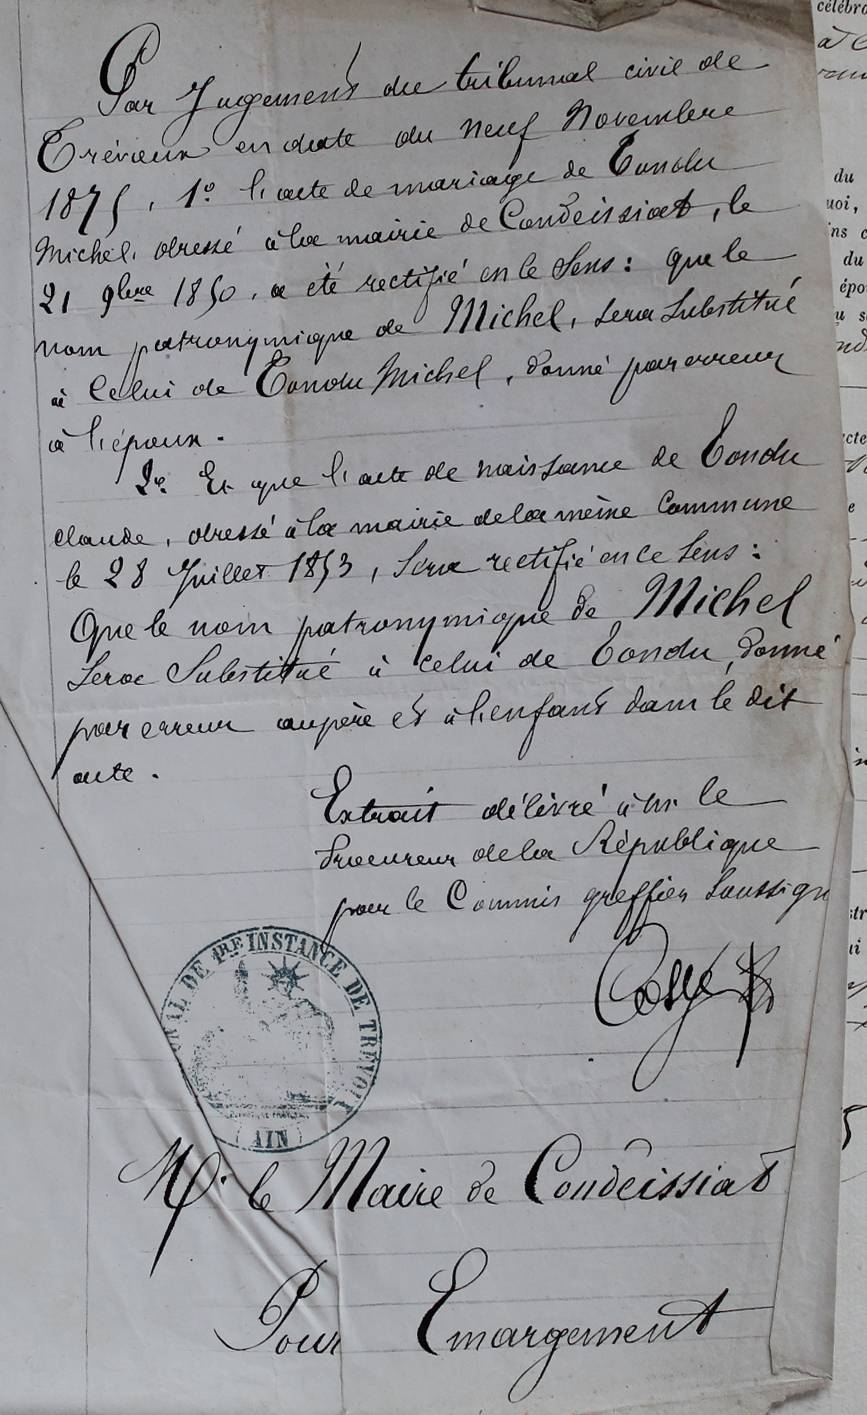 Par Jugement du tribunal civil de
Trévoux en date du neuf Novembre
1875, 1º l'acte de mariage de Tondu
Michel, dressé à la mairie de Condeissiat, le
21 9bre 1850, a été rectifié en ce Sens : que le
nom patronymique de Michel, sera Substitué
à Celui de Tondu Michel, donné par erreur
à l'époux.
2º Et que l'acte de naissance de Tondu
claude, dressé à la mairie de la même Commune
le 28 Juillet 1853, Sera rectifié en ce Sens :
Que le nom patronymique de Michel
Sera Substitué à celui de Tondu, donné
par erreur au père et à l'enfant dans le dit
acte.
Extrait délivré à Mr. le
Procureur de la République
par le Commis greffier Soussigné
TRIBUNAL DE 1RE INSTANCE DE TRÉVOUX
AIN
Mr. le Maire de Condeissiat
Pour Emargement
célébr
du
uoi,
ins
du
épo